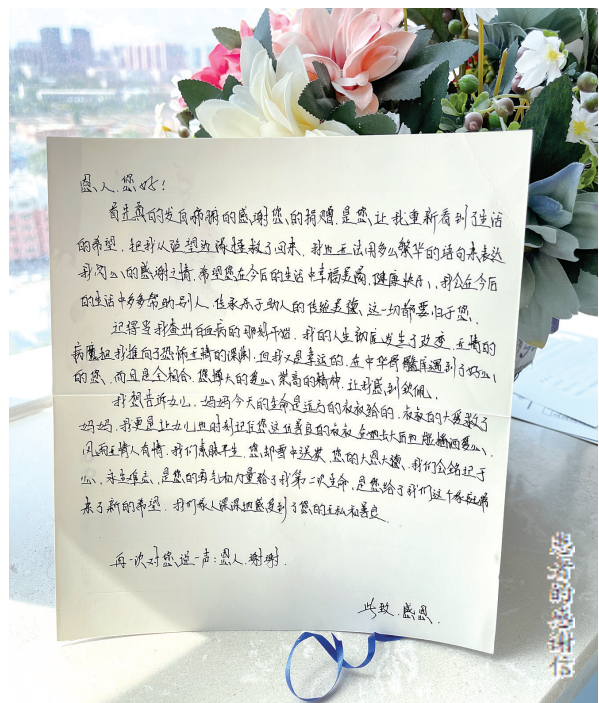 恩人，您好！
首先真的发自肺腑的感谢您的捐赠，是您让我重新看到了生活
的希望，把我从绝望边缘拯救了回来，我也无法用多么繁华的语句来表达
我内心的感谢之情，希望您在今后的生活中幸福美满，健康快乐，我会在今后
的生活中多多帮助别人，传承乐于助人的传统美德，这一切都要归于您。
记得当我查出白血病的那刻开始，我的人生彻底发生了改变，无情的
病魔把我推向了恐怖无情的深渊，但我又是幸运的，在中华骨髓库遇到了好心
的您，而且是全相合，您博大的爱心，崇高的精神，让我感到钦佩。
我想告诉女儿，妈妈今天的生命是远方的叔叔给的，叔叔的大爱救了
妈妈，我更是让女儿也时刻记住您这位善良的叔叔，
风雨无情人有情，我们素昧平生，您却雪中送炭，您的大恩大德，我们会铭记于
心，永生难忘，是您的勇气和力量给了我第二次生命，是您给了我们这个家庭带
来了新的希望，我们家人深深地感受到了您的无私和善良
再一次对您说一声：恩人，谢谢。
此致，感恩。
患者的感谢信